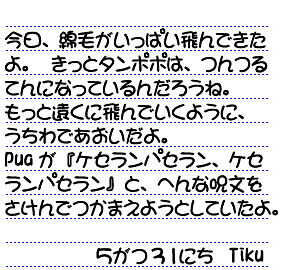 今日、綿毛がいっぱい飛んできた
よ。　きっとタンポポは、つんつる
てんになっているんだろうね。
もっと遠くに飛んでいくように、
うちわであおいだよ。
Puaが『ケセランパセラン、ケセ
ランパセラン』と、へんな呪文を
さけんでつかまえようとしていたよ。
5がつ31にち　Tiku